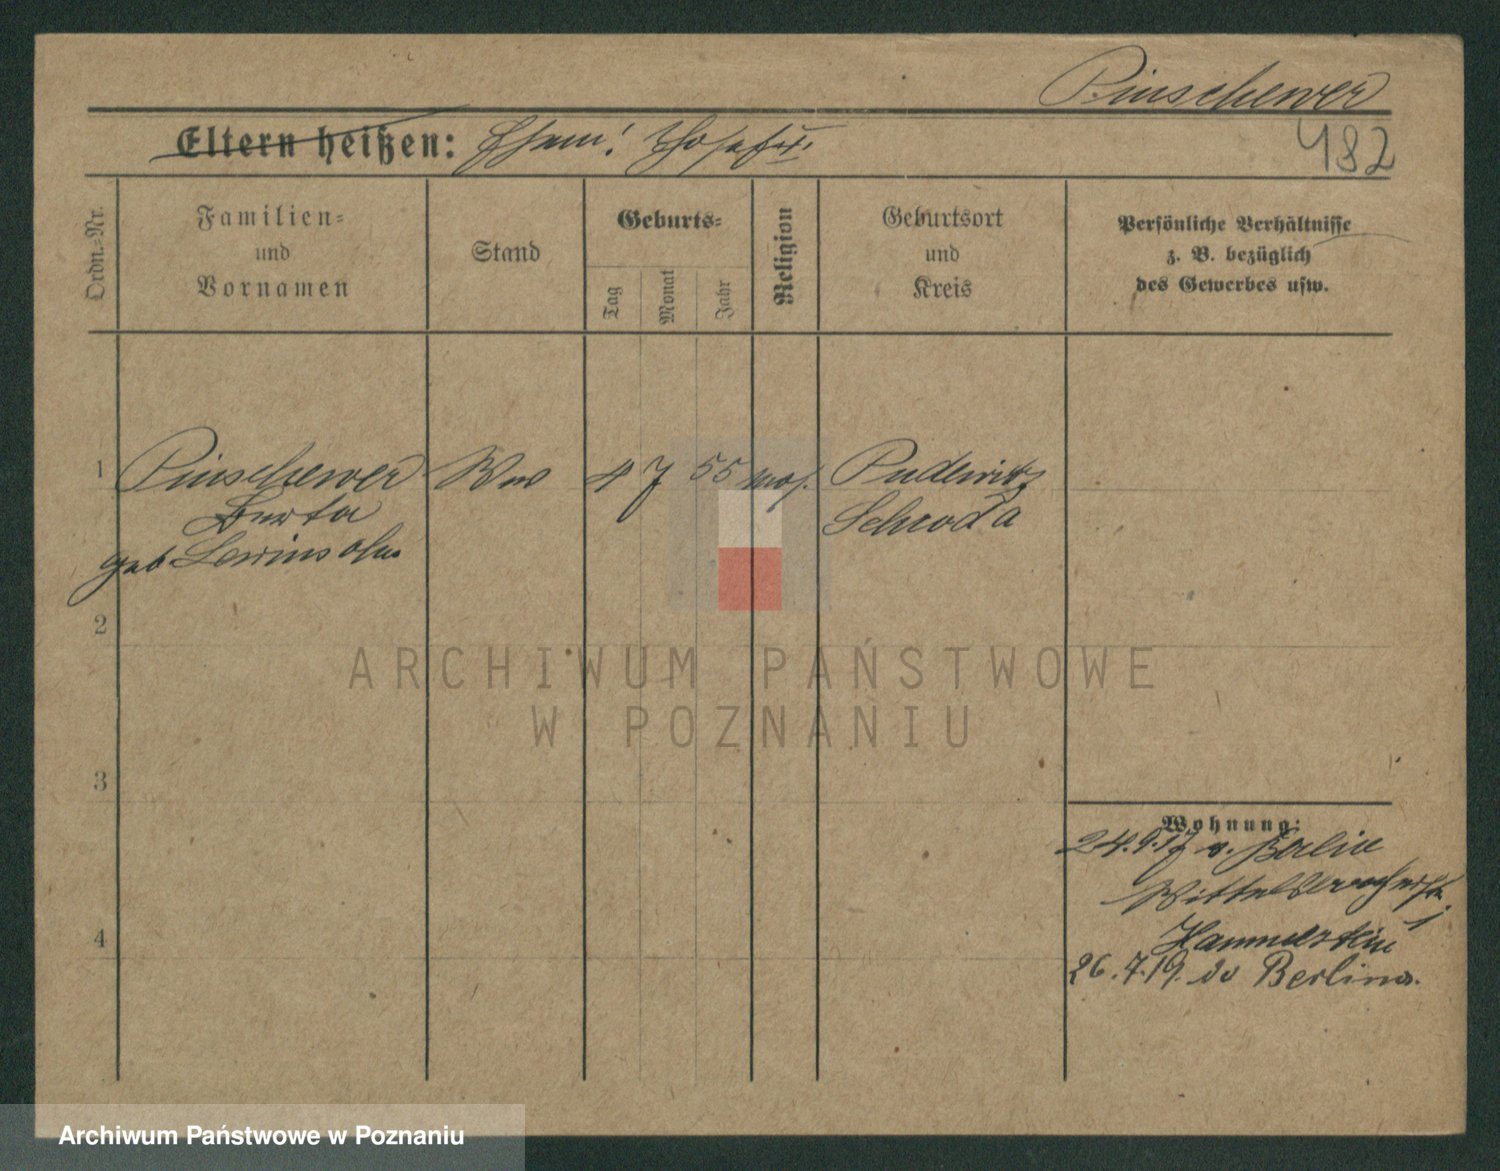 Pinschewer
482
Eltern heißen: Ehem: Josef †.
Ordn.=Nr.
Familien=
und
Vornamen
Stand
Geburts=
Tag
Monat
Jahr
Religion
Geburtsort
und
Kreis
Persönliche Verhältnisse
z. B. bezüglich
des Gewerbes usw.
1 Pinschewer Ww 4 7 55 mos. Pudewitz
Berta Schroda
geb Lewinsohn
2
3
4
Wohnung:
24.9.17 v. Berlin
Hammerstein
26.7.19. do Berlin
ARCHIWUM PAŃSTWOWE
W POZNANIU
Archiwum Państwowe w Poznaniu